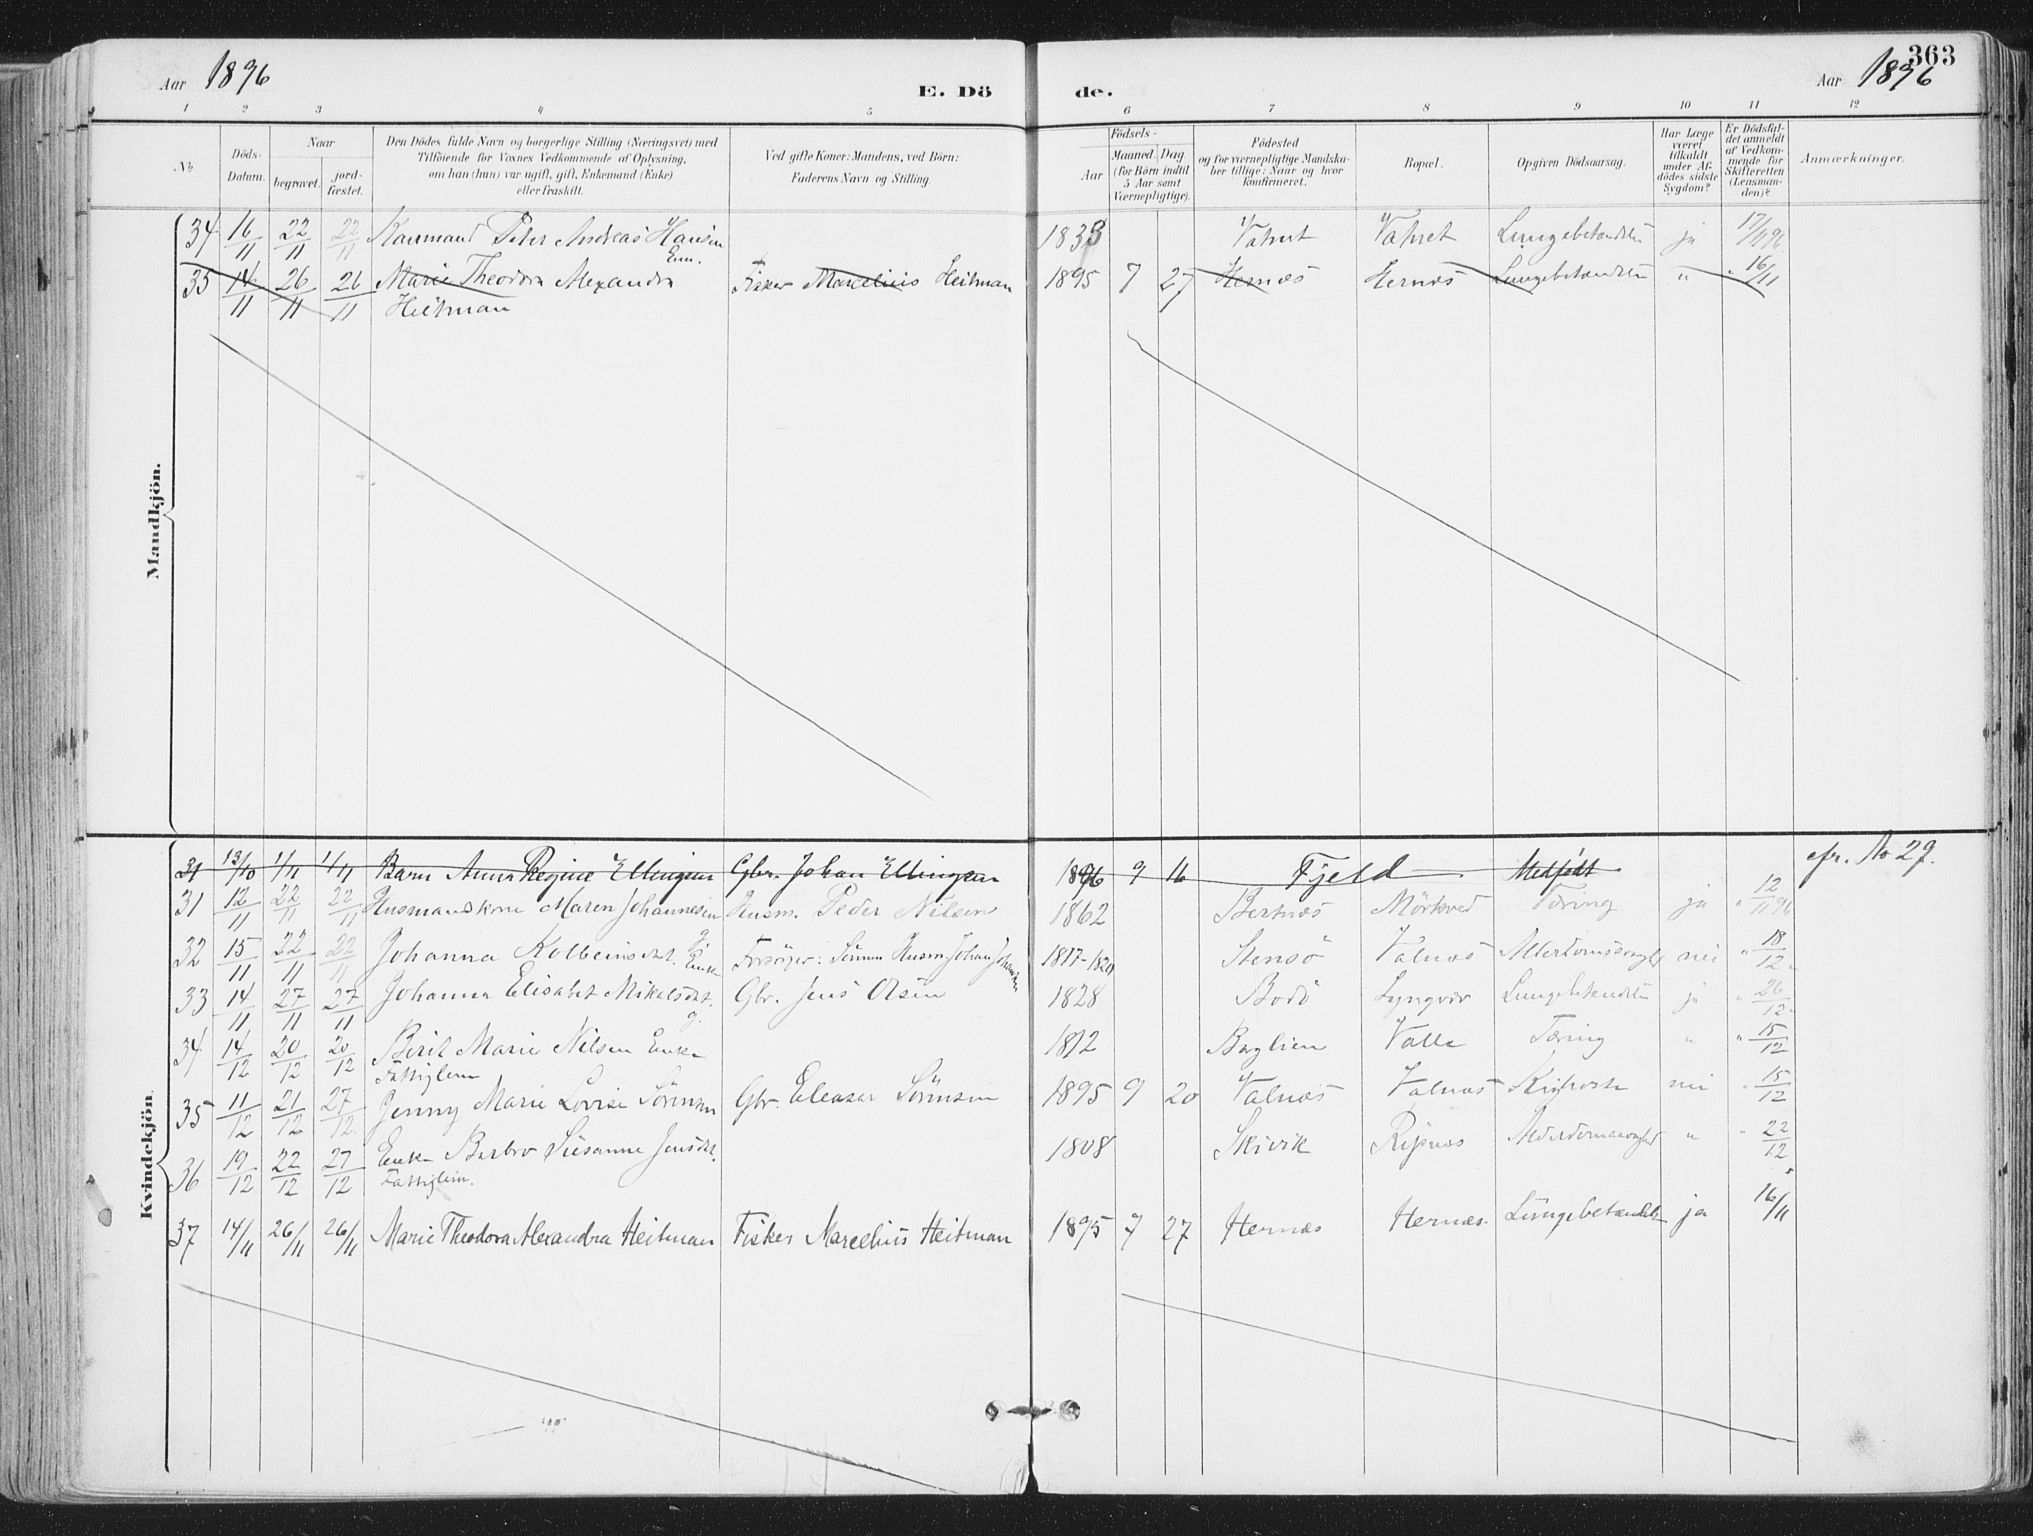 Aar 1896
E. Dö de.
363
Aar 1896
1 2 3 4 5 6 7 8 9 10 11 12
No
Döds-Datum.
Naar begravet. jordfæstet.
Den Dödes fulde Navn og borgerlige Stilling (Næringsvei) med Tilföiende for Voxnes Vedkommende af Oplysning, om han (hun) var ugift, gift, Enkemand (Enke) eller fraskilt.
Ved gifte Koner: Mandens, ved Börn: Faderens Navn og Stilling
Födsels-
Aar Maaned. Dag (for Börn indtil 5 Aar samt Værnepligtige).
Födested og for værnepligtige Mandskaber tillige: Naar og hvor Konfirmeret.
Bopæl.
Opgiven Dödsaarsag.
Har Læge været tilkaldt under Afdödes sidste Sygdom?
Er Dödsfaldet anmeldt af Vedkommende for Skifteretten (Lensmanden)?
Anmærkninger.
Mandkjön.
34 16/11 22/11 22/11 Peter Andreas Hansen 1833 Lungebetændelse ja 17/11 96
35 14/11 26/11 26/11 Marie Theodora Alexandra Heitman Fisker Marcelius Heitman 1895 7 27 Hernæs Hernæs Lungebetændelse " " 16/11
Kvindekjön.
31 13/10 1/11 1/11 Barn Anna Regine Ellingsen Gbr. Johan Ellingsen 1896 9 16 Fjeld Medfödt cfr. No 29.
31 12/11 22/11 22/11 Husmandskone Maren Johannesen Husm. Peder Nilsen 1862 Bertnæs Mörkved Tæring ja " 12/11 96
32 15/11 22/11 22/11 Johanna Kolbeinsdt. Enke Forsörger: Sönnen Husm Johan Johansen 1817-1820 Stensö Valnæs nei " 18/12
33 14/11 27/11 27/11 Johanna Elisabet Mikalsdt. g. Gbr. Jens Olsen 1828 Bodö Lyngvær Lungebetændelse ja " 26/12
34 14/12 20/12 20/12 Berit Marie Nilsen Enke Fattiglem 1812 Valle Tæring " " 15/12
35 11/12 21/12 27/12 Jenny Marie Lovise Sörensen Gbr. Eleasar Sörensen 1895 9 20 Valnæs Valnæs Kighoste nei " 15/12
36 19/12 22/12 27/12 Enke Barbro Susanne Jensdt. Fattiglem. 1808 Skivik " " 22/12
37 14/11 26/11 26/11 Marie Theodora Alexandra Heitman Fisker Marcelius Heitman 1895 7 27 Hernæs Hernæs Lungebetændelse ja 16/11